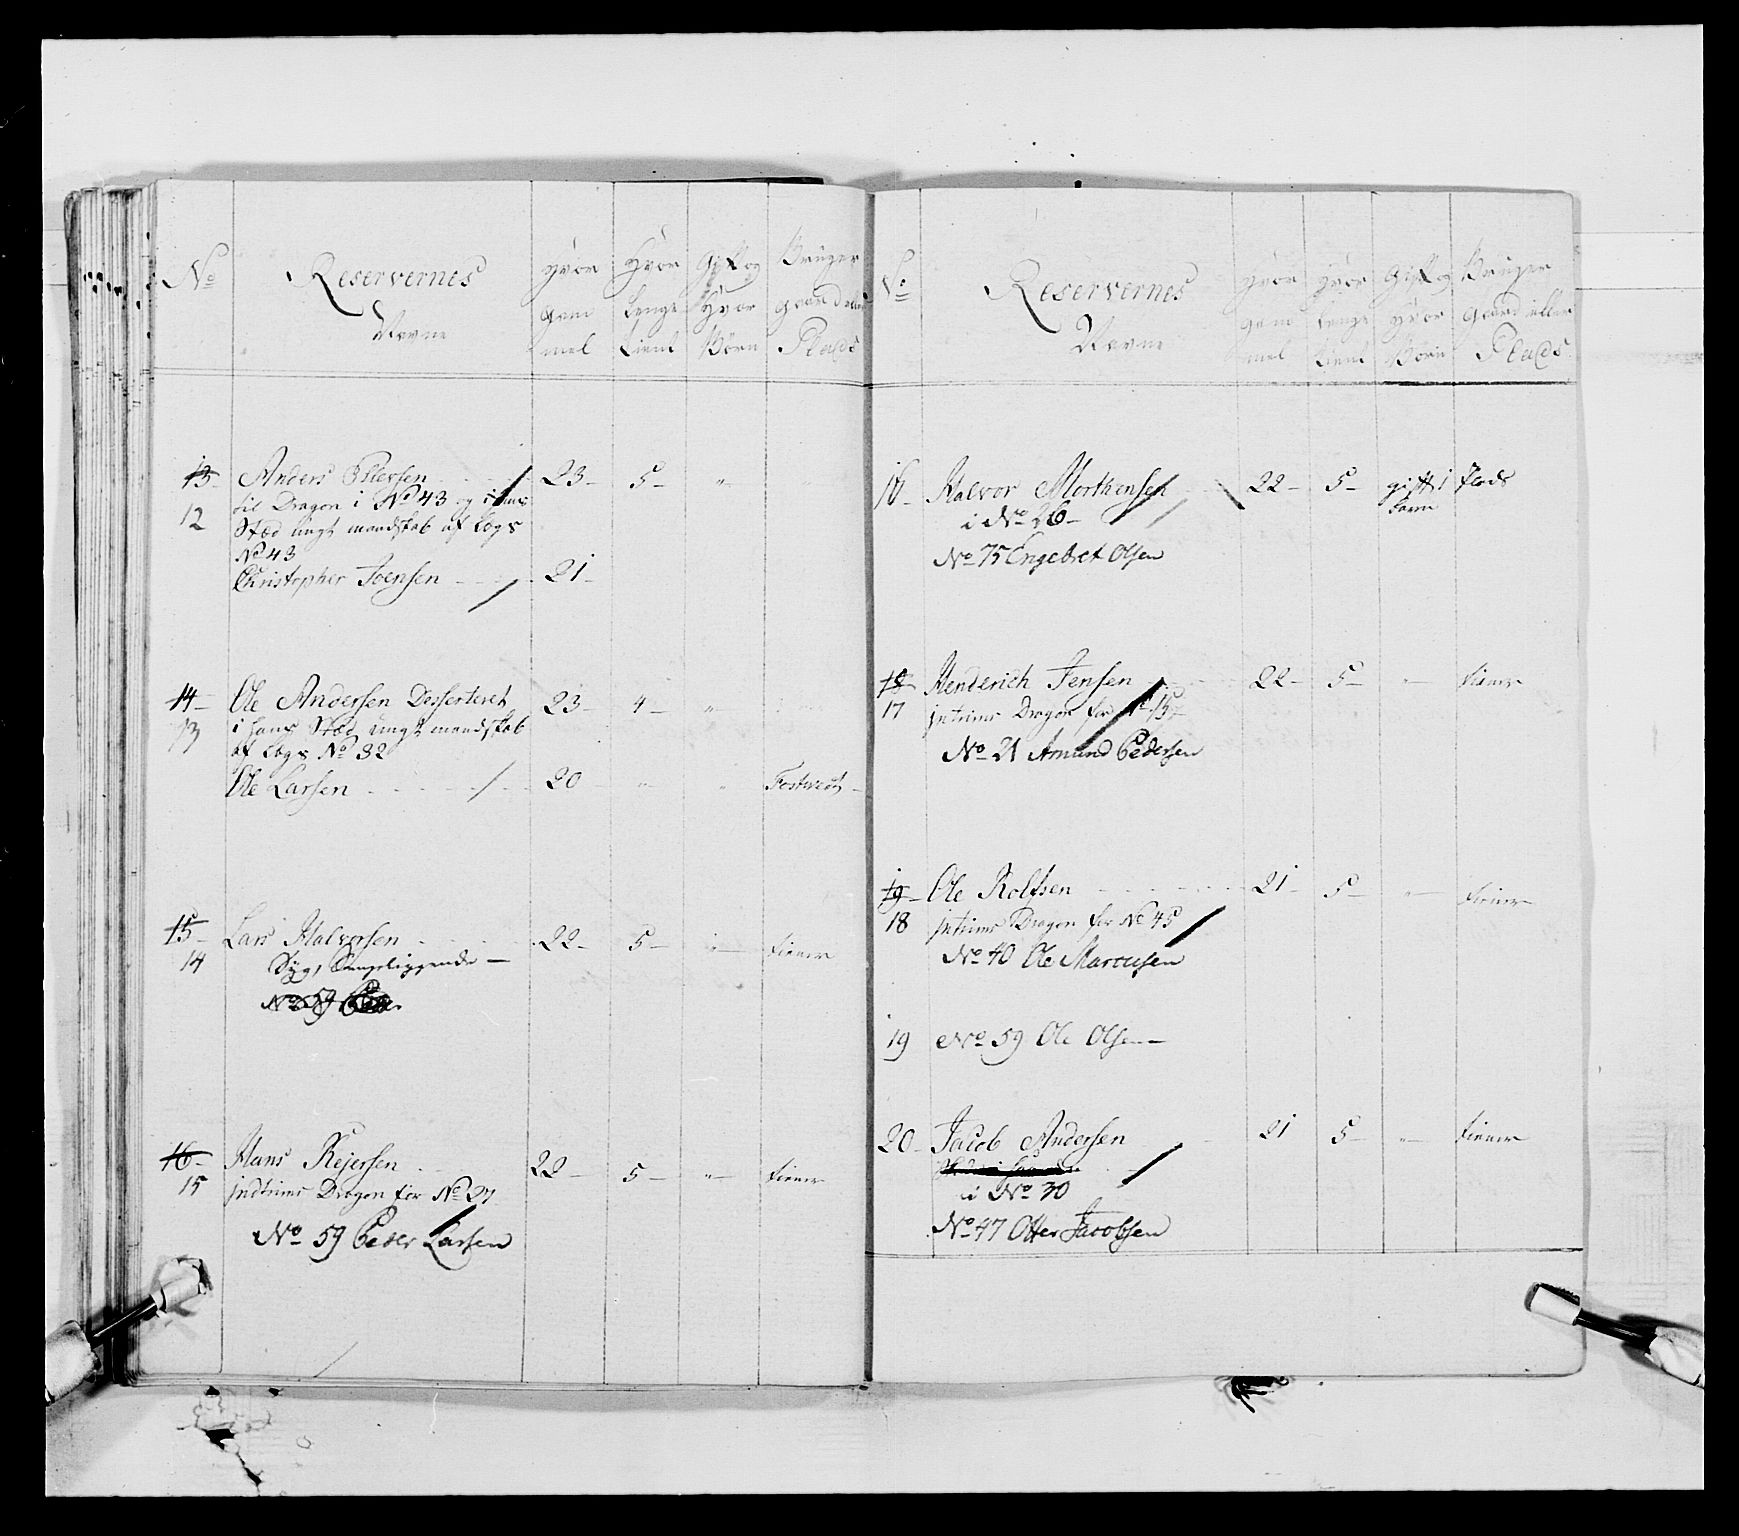 No Reservernes Navne Hvor Gam mel Hvor Lenge Tient Gift og Hvor Børn Bruger Gaard eller Pladss
13 Anders Pedersen 23 - 5 - "
12 til Dragon i No 43 og i hans
Stæd ungt mandskab af Lægs
No 43
Christopher Joensen - - - 21 -
14 - Ole Andersen Desserteret 23 - 4 - "
13 i hans Stæd ungt mandskab
af Lægs No 32
Ole Larsen - - - - - 20 " " Fostwedt -
15 - Lars Halvorsen - - - 22 - 5 - " - tiener
14 Syg, Sengeliggende -
No 59
16 - Hans Rejersen - - 22 - 5 - " - tiener
15 jndtrims Dragon for No 27
No 59 Peder Larsen
No Reservernes Navne Hvor Gam mel Hvor Lenge Tient Gift og Hvor Børn Bruger Gaard eller Pladss
16 - Halvor Morthensen 22 - 5 - gift 1 Plads
Barn
i No 26 -
No 75 Engebret Olsen
18 - Henderich Jensen - - 22 - 5 - " - tiener
17 jntrims Dragon for No 15
No 21 Amund Pedersen
19 - Ole Rolfsen - - - - 21 - 5 - " - tiener
18 jntrims Dragon for No 45
No 40 Ole Marcusen
19 No 59 Ole Olsen -
20 - Jacob Andersen - 21 5 - " - tiener
i No 30
No 47 Otter Jacobsen